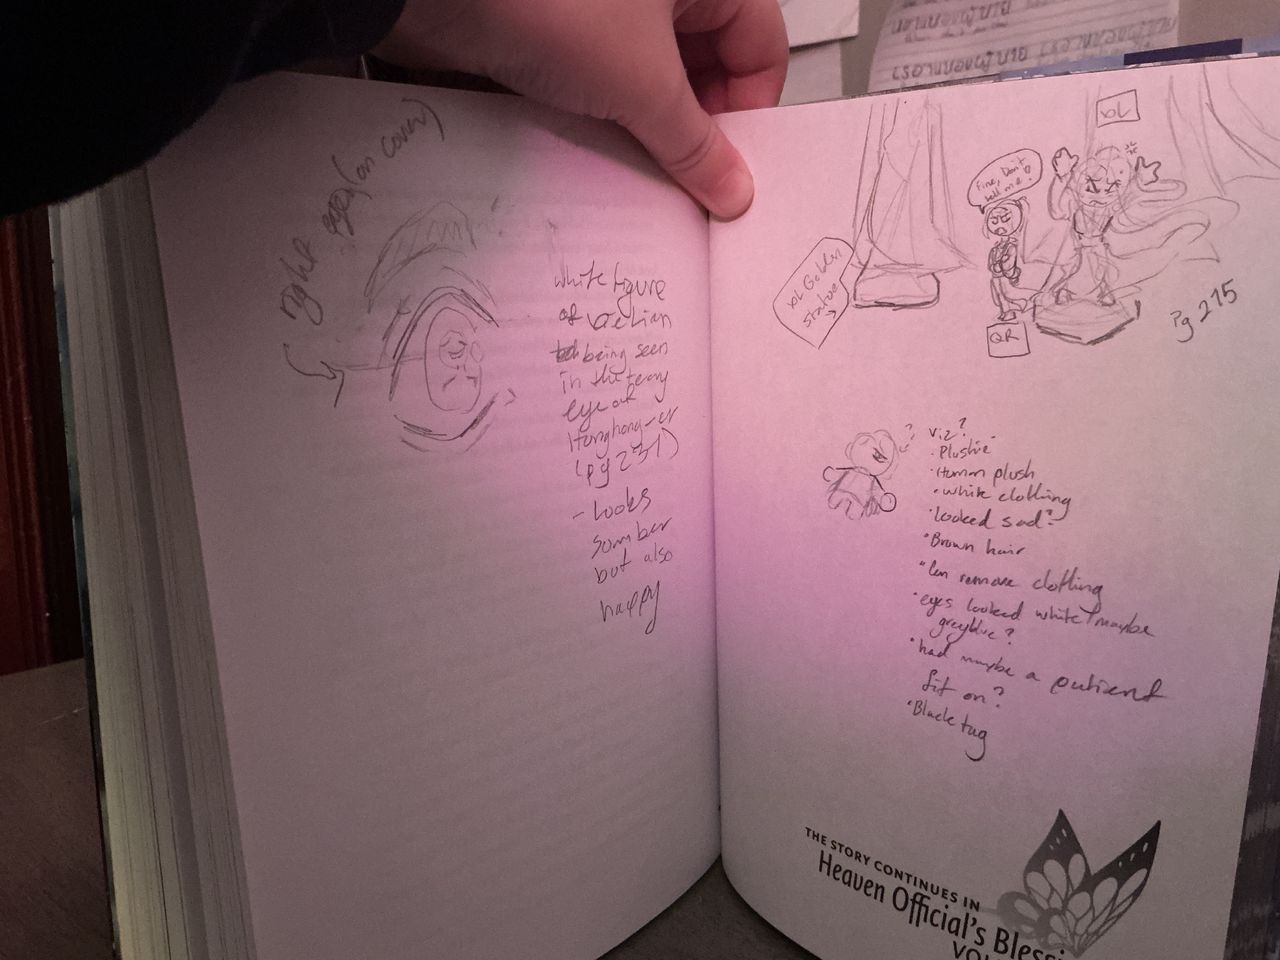 right eye (on cover)
white figure
of xielian
being seen
in the teary
eye of
Honghong-er
(pg 231)
- Looks
somber
but also
happy
XL
Fine, Don't
tell me!
XL Golden
statue
QR
Pg 215
viz?
• Plushie
• Human plush
• white clothing
• looked sad?
• Brown hair
• Can remove clothing
• eyes looked white/maybe
greyblue?
• had maybe a patient
fit on?
• Black tag
THE STORY CONTINUES IN
Heaven Official's Blessi
VO